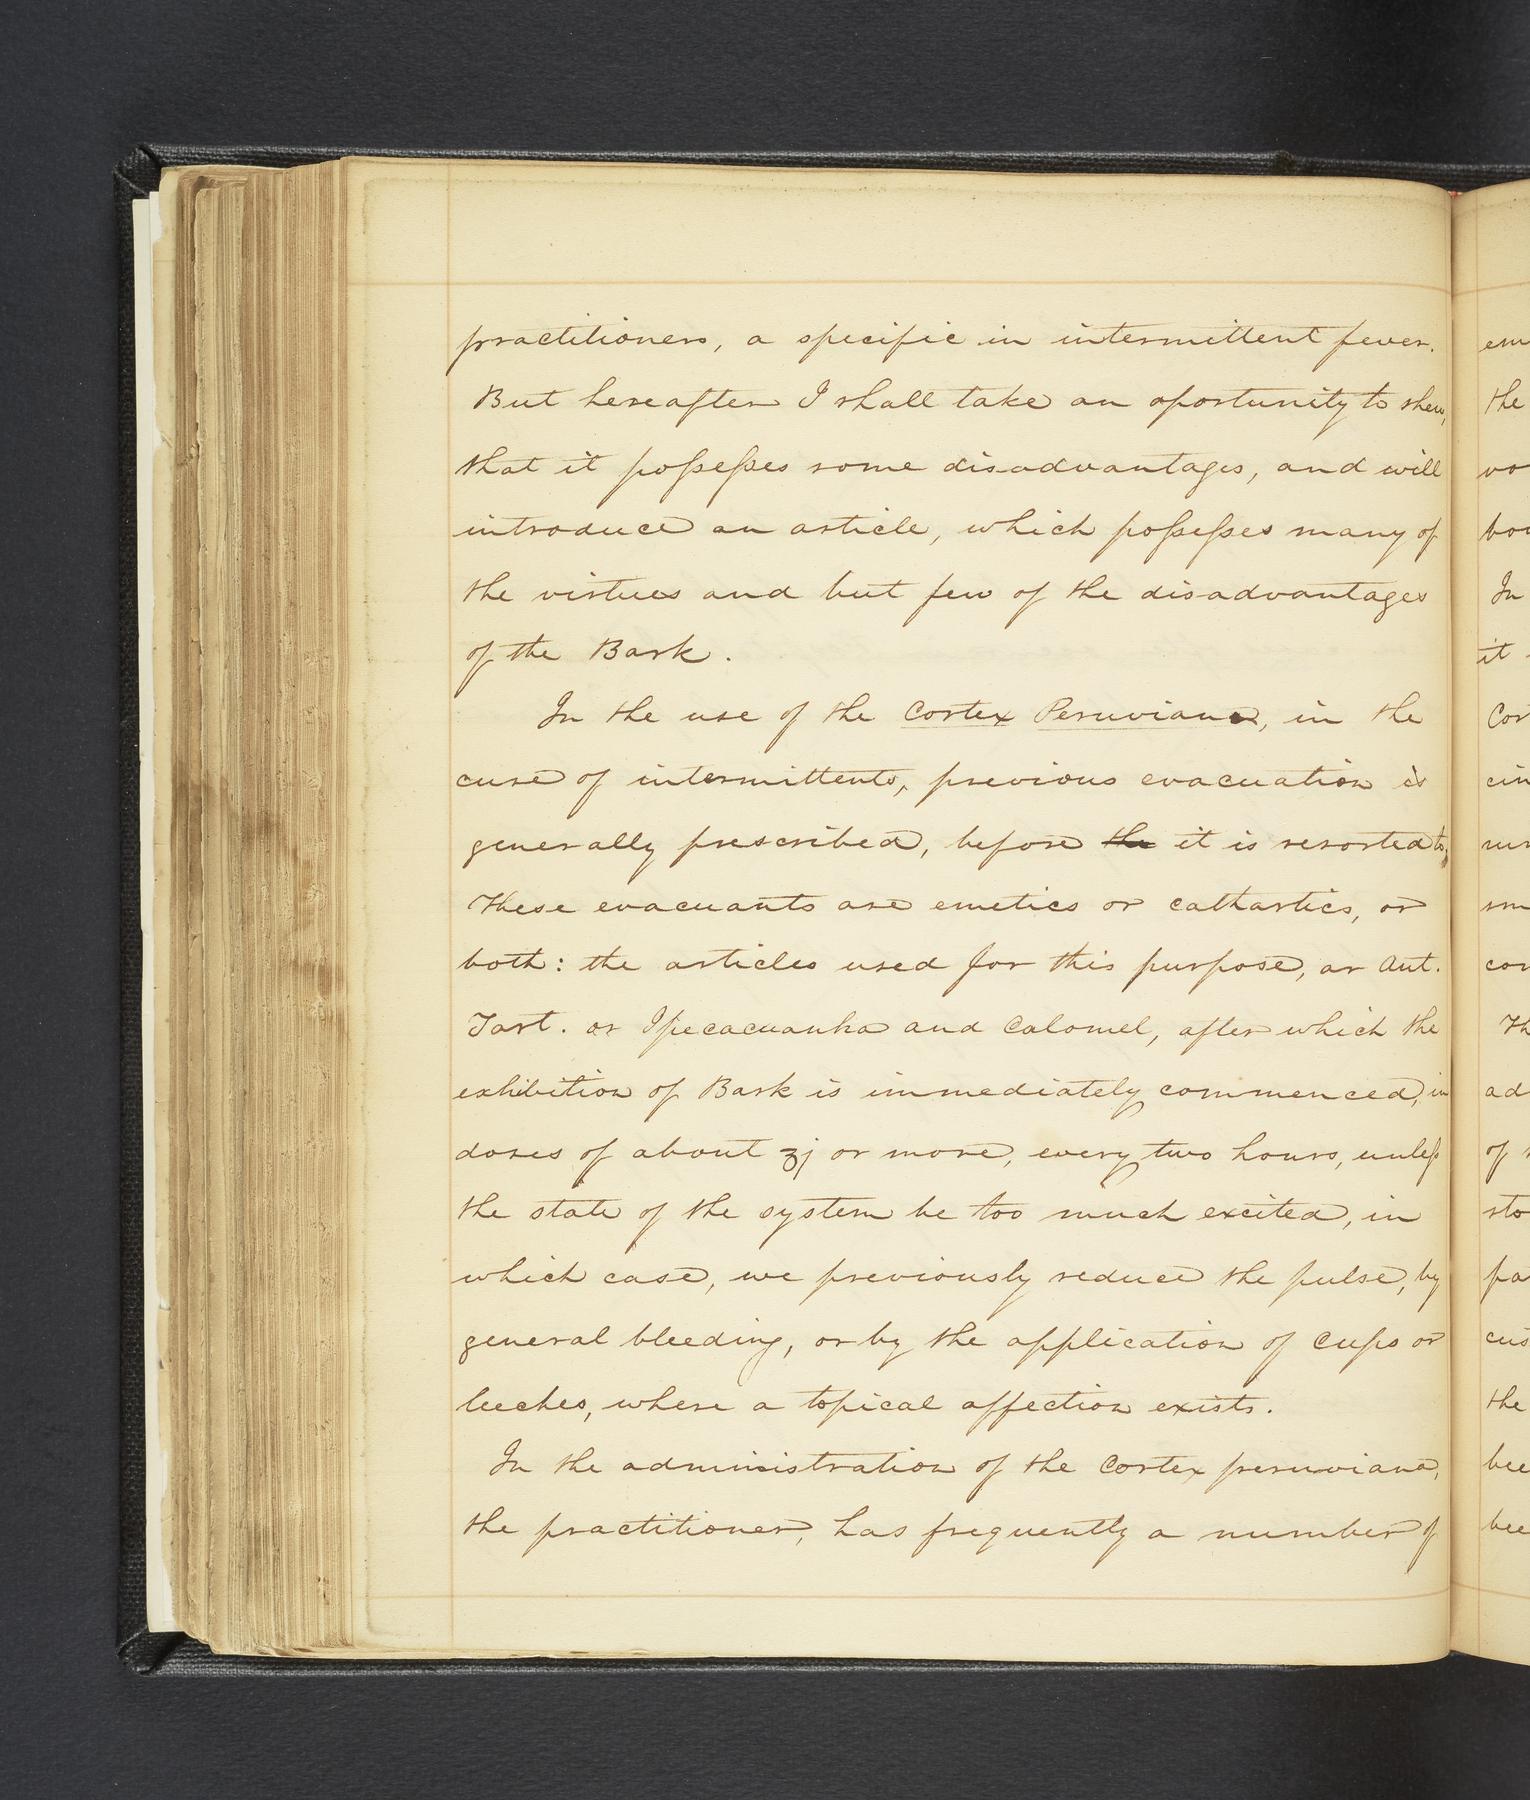 practitioners, a specific in intermittent fever.
But hereafter I shall take an oportunity to shew,
that it poſseſses some disadvantages, and will
introduce an article, which poſseſses many of
the virtues and but few of the disadvantages
of the Bark.
In the use of the Cortex Peruviana, in the
cure of intermittents, previous evacuation is
generally prescribed, before the it is resorted to,
These evacuants are emetics or cathartics, or
both: the articles used for this purpose, ar Ant.
Tart. or Ipecacuanha and Calomel, after which the
exhibition of Bark is immediately commenced, in
doses of about ʒj or more, every two hours, unleſs
the state of the system be too much excited, in
which case, we previously reduce the pulse, by
general bleeding, or by the application of cups or
leeches, where a topical affection exists.
In the administration of the Cortex peruviana,
the practitioner, has frequently a number of